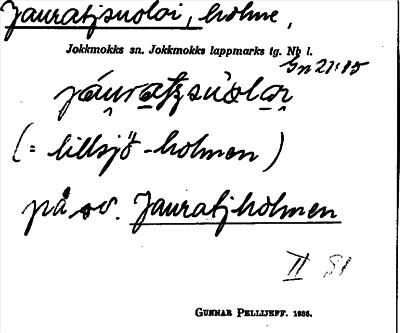 Jauratjsuoloi, holme,
Jokkmokks sn. Jokkmokks lappmarks tg. Nb l.
Gn 21:15
(= lillsjö-holmen)
på sv. Jauratjholmen
II S1
GUNNAR PELLIJEFF. 1936.